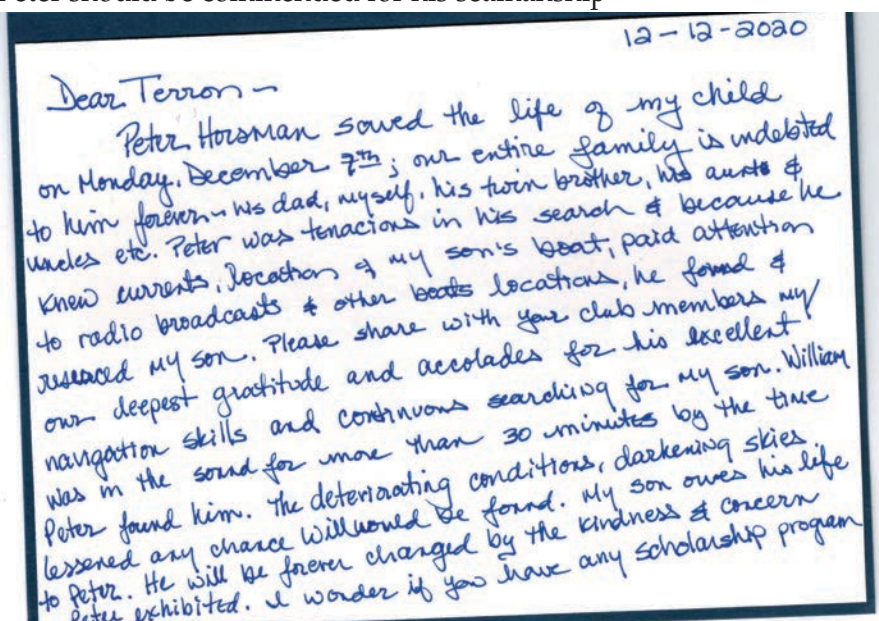 Peter should be commended for his seamanship
12-12-2020
Dear Terron -
Peter Horsman saved the life of my child
on Monday, December 7th; our entire family is indebted
to him forever - his dad, myself, his twin brother, his aunts &
uncles etc. Peter was tenacious in his search & because he
knew currents, location of my son's boat, paid attention
to radio broadcasts & other boats locations, he found &
rescued my son. Please share with your club members my/
our deepest gratitude and accolades for his excellent
navigation skills and continuous searching for my son. William
was in the sound for more than 30 minutes by the time
Peter found him. The deteriorating conditions, darkening skies
lessened any chance Will would be found. My son owes his life
to Peter. He will be forever changed by the kindness & concern
Peter exhibited. I wonder if you have any scholarship program